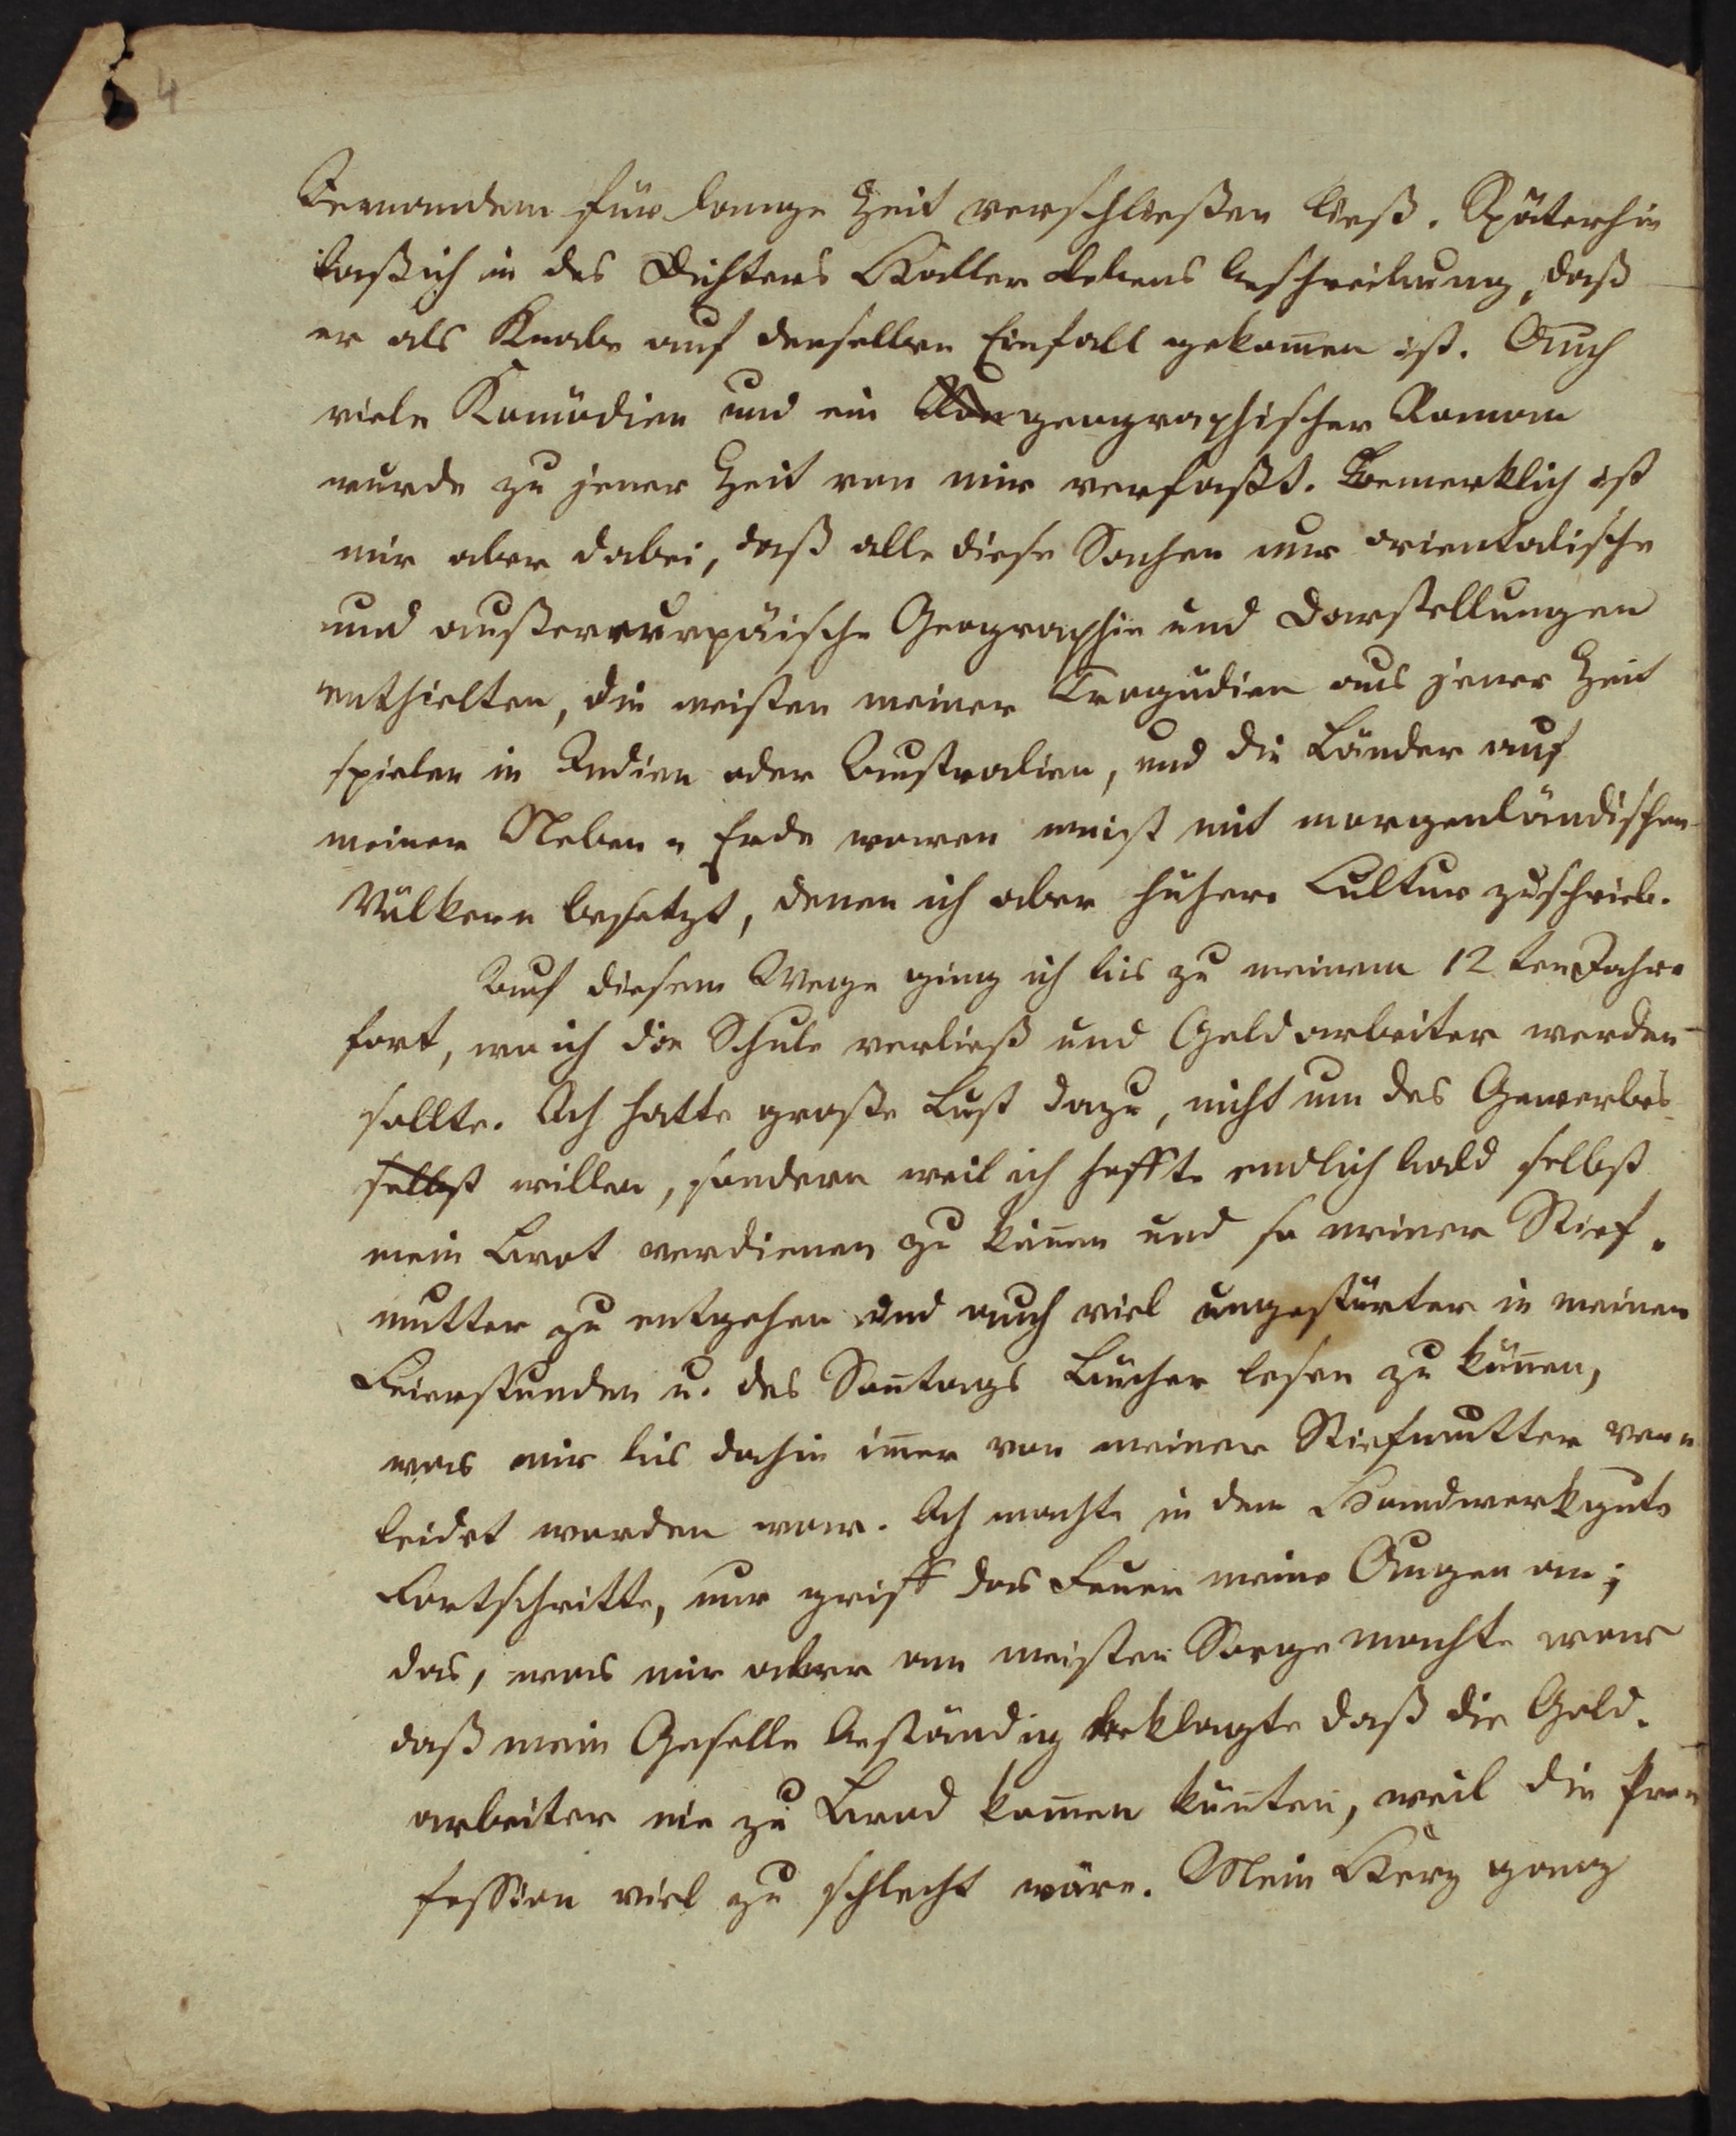 4
Jemandem für lange Zeit verschließen ließ. Späterhin
laß ich in des Dichters Haller Lebens beschreibung, daß
er als Knabe auf denselben Einfall gekom̅en ist. Auch
viele Komödien und ein geographischer Roman
wurde zu jener Zeit von mir verfaßt. Bemerklich ist
mir aber dabei, daß alle diese Sachen nur orientalische
und außereuropäische Geographie und Darstellungen
enthielten, die meisten meiner Tragödien aus jener Zeit
spielen in Indien oder Australien, und die Länder auf
meiner Neben-Erde waren meist mit morgenländischen
Völkern besetzt, denen ich aber höhere Cultur zuschrieb.
Auf diesem Wege ging ich bis zu meinem 12 ten Jahre
fort, wo ich die Schule verließ und Goldarbeiter werden
sollte. Ich hatte große Lust dazu, nicht um des Gewerbes
selbst willen, sondern weil ich hoffte endlich bald selbst
mein Brot verdienen zu kön̅en und so meiner Stief-
mutter zu entgehen und auch viel ungestörter in meinen
Feierstunden u. des Son̅tags Bücher lesen zu kön̅en,
was mir bis dahin im̅er von meiner Stiefmutter ver-
leidet worden war. Ich machte in dem Handwerk gute
Fortschritte, nur griff das Feuer meine Augen an;
das, was mir aber am meisten Sorge machte war
daß mein Geselle beständig beklagte daß die Gold-
arbeiter nie zu Brod kom̅en kön̅ten, weil die Pro-
fession viel zu schlecht wäre. Mein Herz ganz